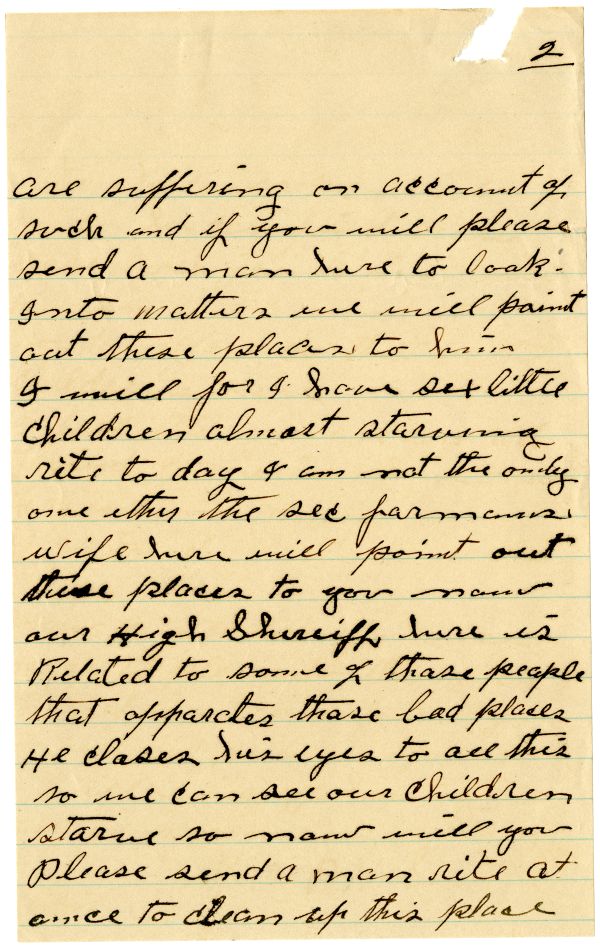 2
are suffering on account of
such and if you will please
send a man here to look
Into matters we will point
out these places to him
I will for I have sex little
children almost starving
rite to day I am not the only
one ether the sec
wife here will point out
these places to you now
our High Shereiff here is
Related to some of those people
that opparates those bad places
He closes his eyes to all this
so we can see our children
starve so now will you
Please send a man rite at
once to clean up this place